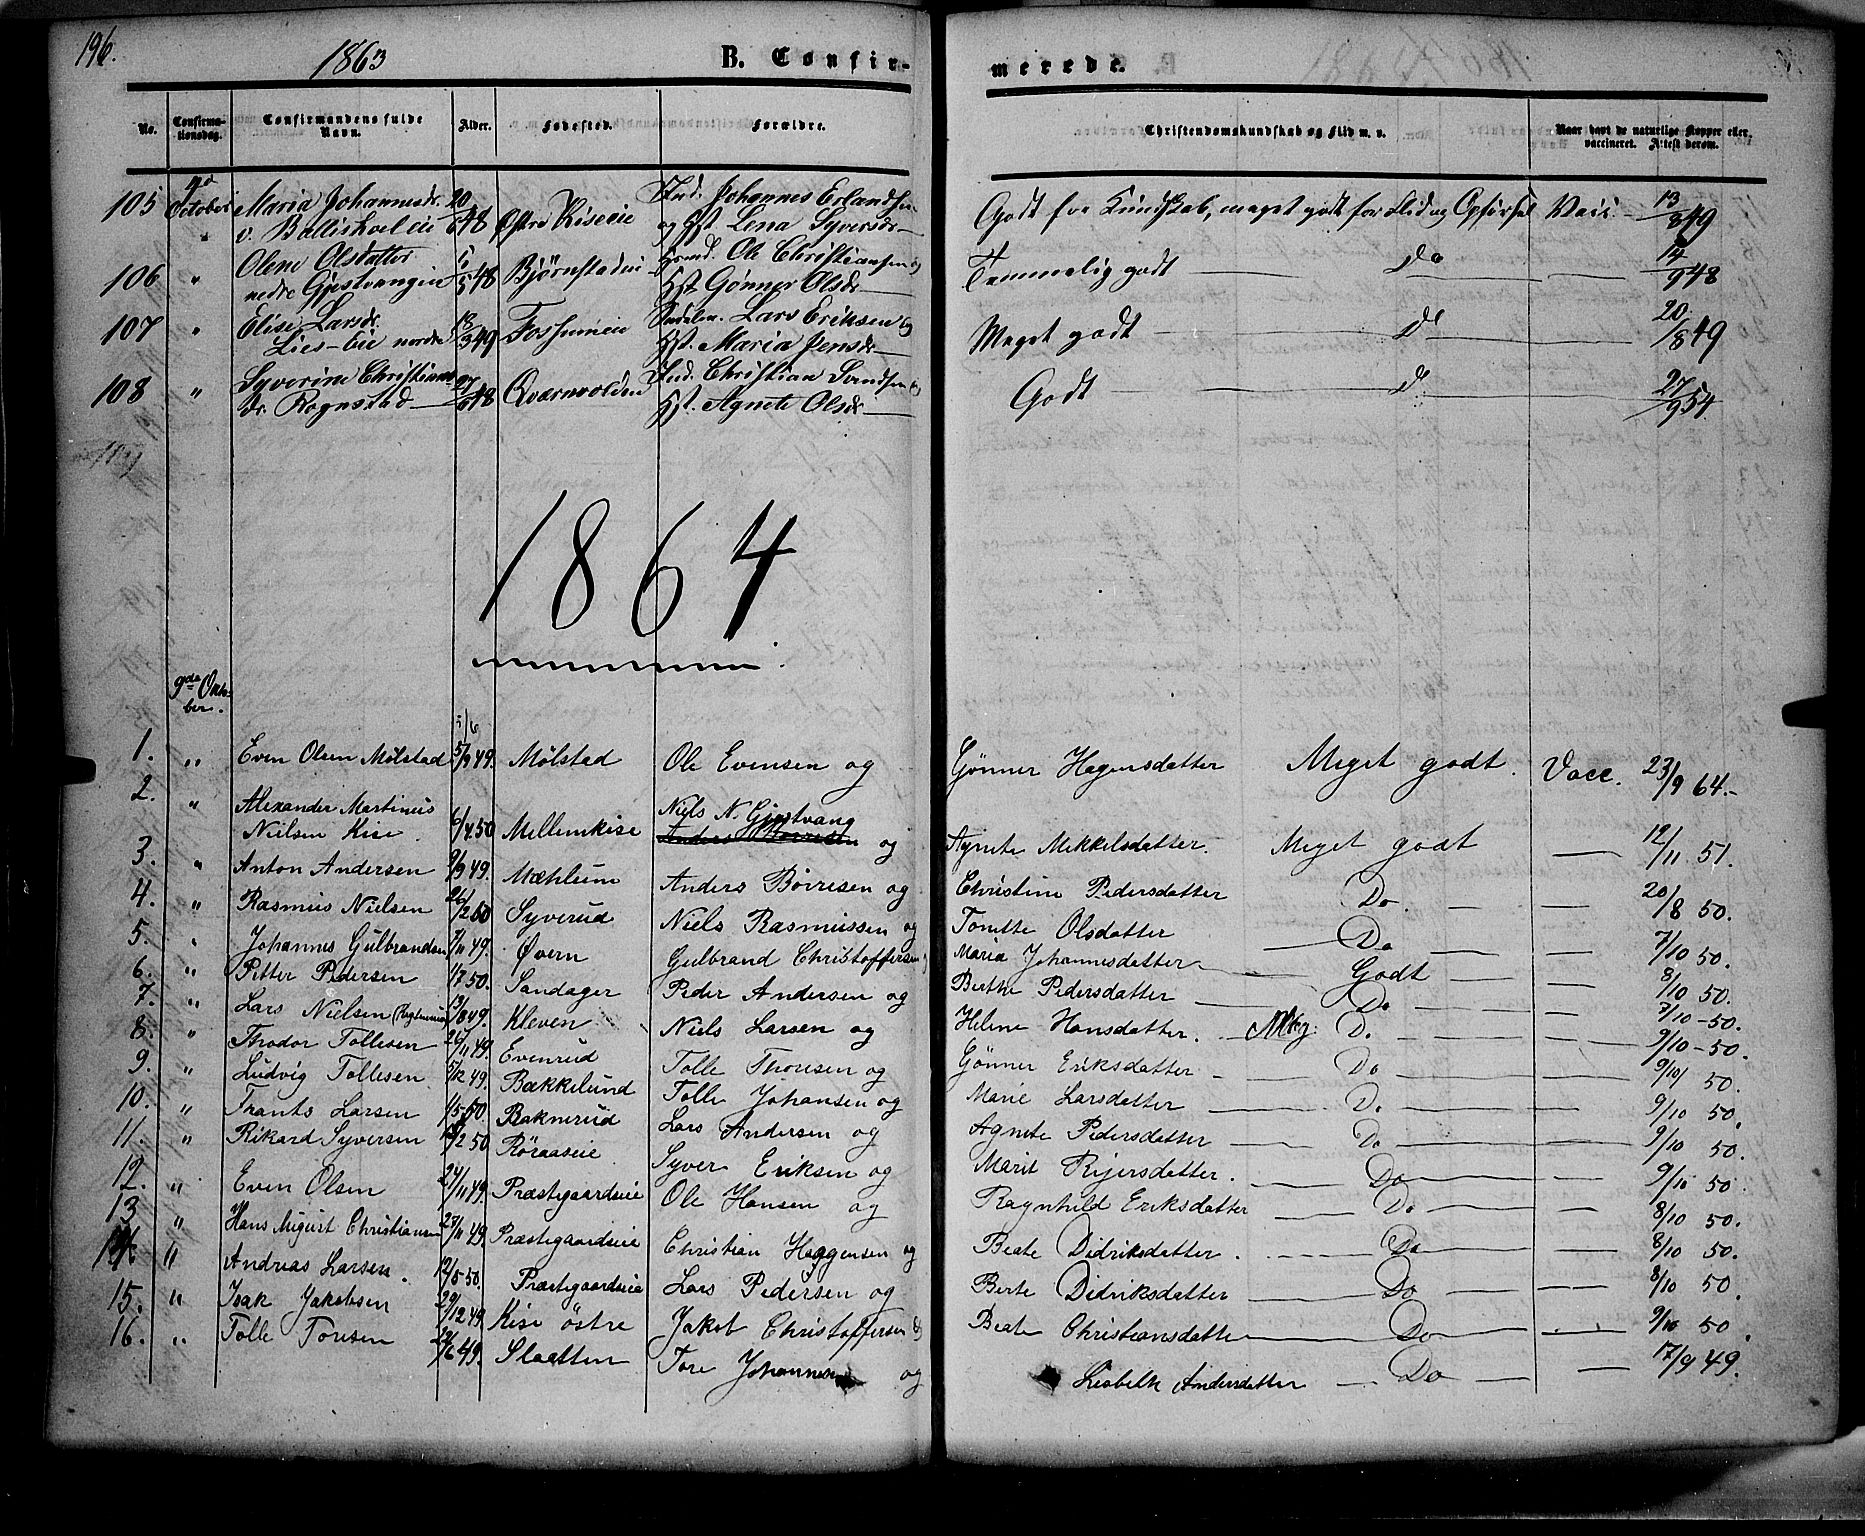 196.
1863
B. Confir-
merede.
No.
Confirma-
tionsdag.
Confirmandens fulde
Navn.
Alder.
Fødested.
Forældre.
Christendomskundskab og Flid m. v.
Naar havt de naturlige Kopper eller
vaccineret. Attest derom.
105 October Maria Johannesdr. 20/6 48 Østre Kiseeie Ind. Johannes Erlandsen
og Hst. Lena Syversdr. Godt for Kundskab, meget godt for Flid og Opførsel Vacc. 13/8 49
106 " Olene Olsdatter
nedre Gjestvangeie 1/5 48 Bjørnstadeie Ole Christiansen og
Hst. Gønner Olsdr. Temmelig godt — Do — 14/9 48
107 " Elise Larsdr.
Lies-Eie nordre 18/3 49 Fossumeie Lars Eriksen og
Hst. Maria Jensdr. Meget godt — Do — 20/8 49
108 " Syverine Christians
dr. Rognstad 27/6 48 Qværnvolden Ind. Christian Svendsen og
Hst. Agnete Olsdr. Godt — Do — 27/9 54.
1864
9de Octo-
ber.
1. " Even Olsen Mølstad 5/9 49. Mølstad Ole Evensen og Gønner Hagensdatter Meget godt. Vacc. 23/9 64.-
2. " Alexander Martinus
Nielsen Kise. 6/4 50 Mellemkise Niels N. Gjestvang og Agnete Mikkelsdatter. Meget godt — 12/11 51.
3. " Anton Andersen 9/9 49. Mæhlum Anders Børresen og Christine Pedersdatter Do. — 20/8 50.
4. " Rasmus Nielsen 26/2 50 Syverud Niels Rasmussen og Tonette Olsdatter — Do — 7/10 50.
5. " Johannes Gulbrandsen 7/11 49. Øvern Gulbrand Christoffersen Maria Johannesdatter — Godt — 8/10 50.
6. " Petter Pedersen 1/7 50. Sandager Peder Andersen og Berthe Pedersdatter — Do — 7/10-50.
7. " Lars Nielsen 13/8 49. Kleven Niels Larsen og Helene Hansdatter. Meg. Do. — 9/10-50.
8. " Thodor Tollesen 26/11 49. Evenrud Tolle Thoresen og Gønner Eriksdatter — Do — 9/10 50.
9. " Ludvig Tollesen 5/12 49. Bækkelund Tolle Johansen og Marie Larsdatter — Do — 9/10 50.
10. " Frants Larsen 1/5 50 Bakmerud Lars Andersen og Agnete Pedersdatter — Do — 9/10 50.
11. " Rikard Syversen /2 50 Røraaseie Syver Eriksen og Marit Rejersdatter. — Do — 9/10 50.
12. " Even Olsen 24/11 49. Præstegaardseie Ole Hansen og Ragnhild Eriksdatter — Do — 8/10 50.
13 " Hans August Christiansen 23/11 49. Præstegaardseie Christian Haggensen og Beate Didriksdatter. — Do — 8/10 50.
14 " Andreas Larsen. 12/5 50. Præstegaardseie Lars Pedersen og Berte Didriksdatter — Do — 8/10 50.
15. " Isak Jakobsen 29/12 49. Kise østre Jakob Christoffersen og Beate Christiansdatter — Do — 9/10 50.
16. " Tolle Toresen 22/6 49. Slaatten Tore Johannesen og Lisbeth Andersdatter — Do — 17/9 49.